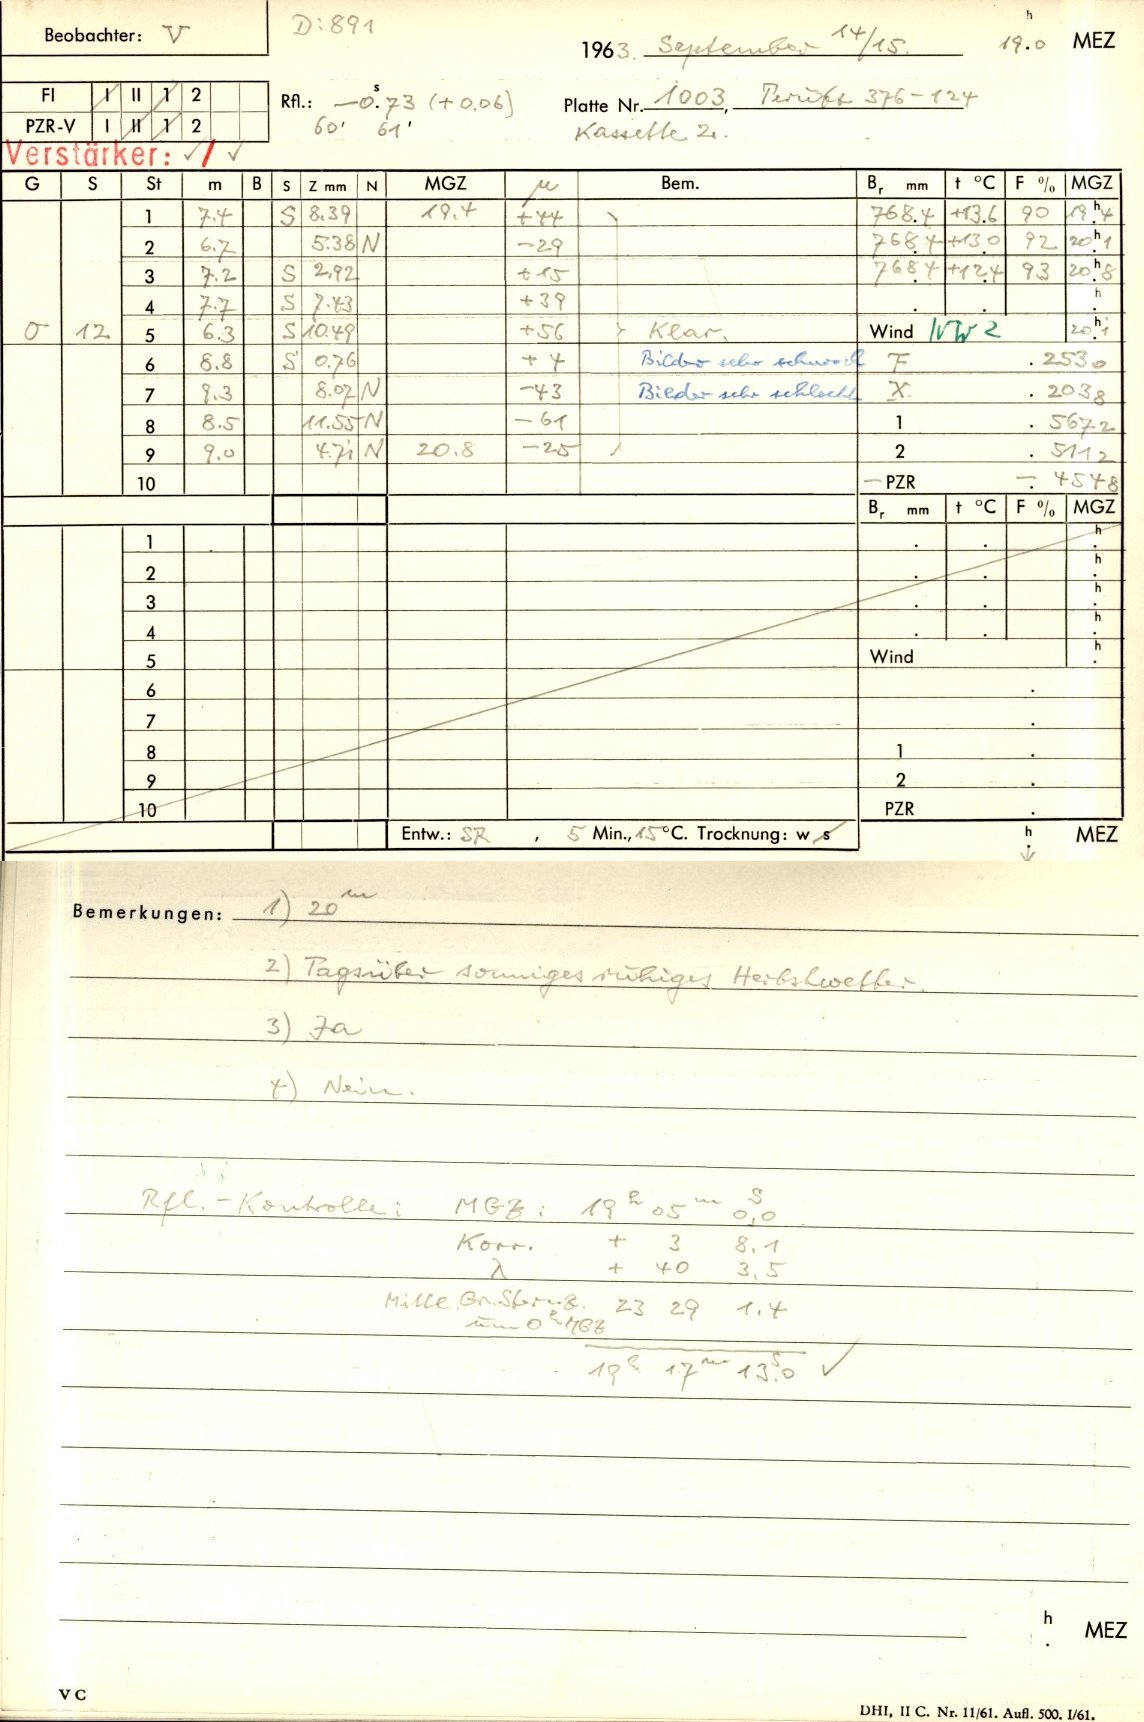 Beobachter: V
D:891
1963. September 14/15. 19.0 h MEZ
FI I II 1 2
PZR-V I II 1 2
Rfl.: -0.73 s (+0.06)
60' 61'
Platte Nr. 1003, Perutz 376-124
Kassette 2.
Verstärker: ✓/✓
G S St m B S Z mm N MGZ μ Bem. Br mm t °C F % MGZ
1 7.4 S 8.39 19.4 +44 768.4 +13.6 90 19.h4
2 6.7 5.38 N -29 768.4 +13.0 92 20.h1
3 7.2 S 2.92 +15 768.4 +12.4 93 20.h8
4 7.7 S 7.43 +39 . . h.
σ 12 5 6.3 S 10.49 +56 Klar. Wind NW 2 20.h1
6 8.8 S 0.76 +4 Bilder sehr schwach F .2530
7 9.3 8.07 N -43 Bilder sehr schlecht X .2038
8 8.5 11.55 N -61 1 .5672
9 9.0 4.71 N 20.8 -25 2 .5112
10 - PZR -.4548
Br mm t °C F % MGZ
1 . . h.
2 . . h.
3 . . h.
4 . . h.
5 Wind h.
6 .
7 .
8 1 .
9 2 .
10 PZR .
Entw.: SR , 5 Min., 15°C. Trocknung: w s h. MEZ
Bemerkungen: 1) 20m
2) Tagsüber sonniges ruhiges Herbstwetter.
3) Ja
4) Nein.
Rfl.-Kontrolle: MGZ: 19h 05m 0,0s
Korr. + 3 8.1
λ + 40 3.5
Mittl. Gr. Sternz. 23 29 1.4
um 0h MGZ
19h 17m 13.0s ✓
h. MEZ
V C
DHI, II C. Nr. 11/61. Aufl. 500. I/61.